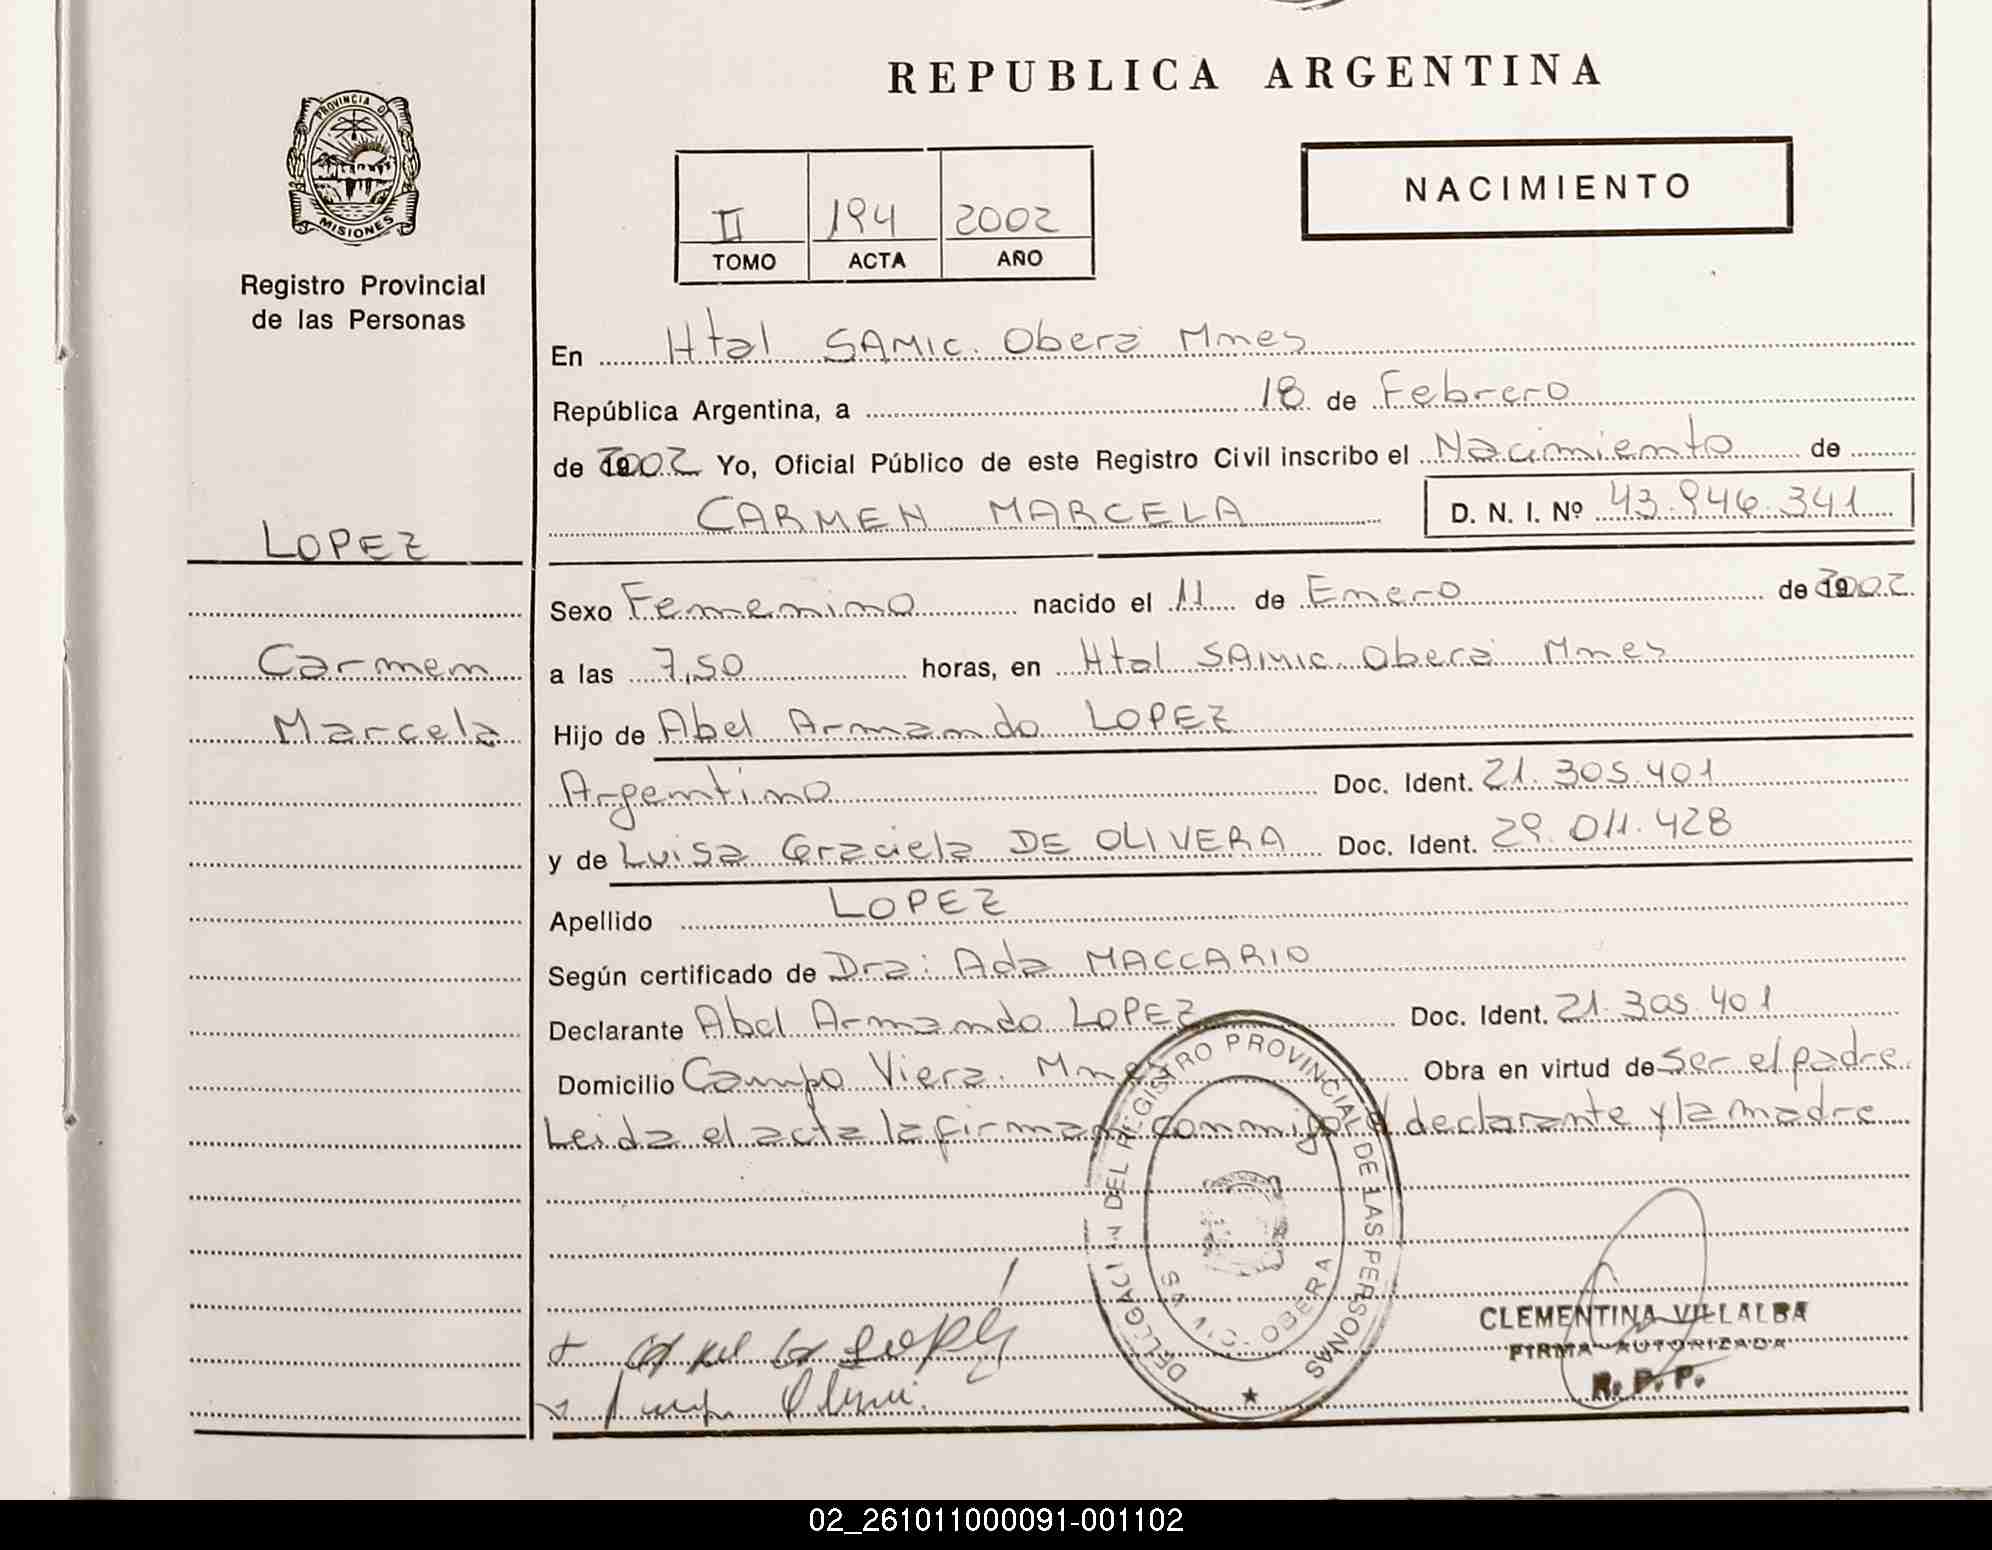 REPUBLICA ARGENTINA
PROVINCIA D
MISIONES
Registro Provincial
de las Personas
NACIMIENTO
II 194 2002
TOMO ACTA AÑO
En Htal SAMIC. Oberá Mnes
República Argentina, a 18 de Febrero
de 2002 Yo, Oficial Público de este Registro Civil inscribo el Nacimiento de
CARMEN MARCELA D. N. I. Nº 43.946.341
LOPEZ
Carmen
Marcela
Sexo Femenino nacido el 11 de Enero de 2002
a las 7,50 horas, en Htal SAMIC. Oberá Mnes
Hijo de Abel Armando LOPEZ
Argentino Doc. Ident. 21.305.401
y de Luisa Graciela DE OLIVERA Doc. Ident. 29.011.428
Apellido LOPEZ
Según certificado de Dra: Ada MACCARIO
Declarante Abel Armando LOPEZ Doc. Ident. 21.305.401
Domicilio Campo Viera. Mnes Obra en virtud de Ser el padre.
Leida el acta la firman conmigo el declarante y la madre
REGISTRO PROVINCIAL DE LAS PERSONAS
OBERA
CLEMENTINA VILLALBA
FIRMA AUTORIZADA
R. P. P.
02_261011000091-001102